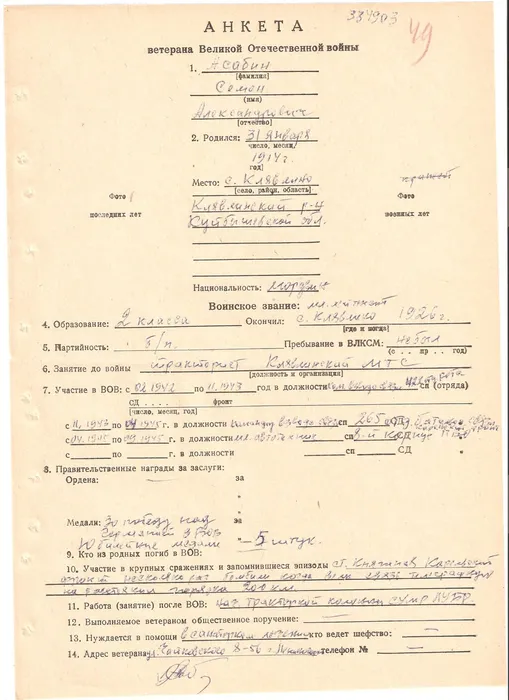 384903
49
АНКЕТА
ветерана Великой Отечественной войны
1. Асабин
(фамилия)
Семен
(имя)
Александрович
(отчество)
2. Родился: 31 января
число, месяц,
1914 г.
год)
Место: с. Клявлино
(село, район, область)
Клявлинский р-н
Куйбышевской обл.
Фото
последних лет
Фото
военных лет
Национальность: мордвин
Воинское звание: мл. лейтенант
4. Образование: 2 класса Окончил: с. Клявлино 1926 г.
(где и когда)
5. Партийность: б/п. Пребывание в ВЛКСМ: не был
(с .. пр . . год)
6. Занятие до войны тракторист Клявлинский МТС
(должность и организация)
7. Участие в ВОВ: с 02 1942 по 11.1943 год в должности сп (отряда)
СД фронт
(число, месяц, год)
с 11.1943 по 1945 г. в должности командир взвода сп 265 СД
с 1945 по 1945 г. в должности сп СД
с по г. в должности сп СД
8. Правительственные награды за заслуги:
Ордена: за
"
"
Медали: За победу над за
Германией в ВОВ
Юбилейные медали — 5 штук.
9. Кто из родных погиб в ВОВ:
10. Участие в крупных сражениях и запомнившиеся эпизоды Карельский
фронт несколько раз бомбили когда вели связь
на расстоянии порядка 200 км.
11. Работа (занятие) после ВОВ: нач. тракторной колонны
12. Выполняемое ветераном общественное поручение: —
13. Нуждается в помощи в санаторном лечении кто ведет шефство: —
14. Адрес ветерана ул. Чайковского 8-56 телефон № —